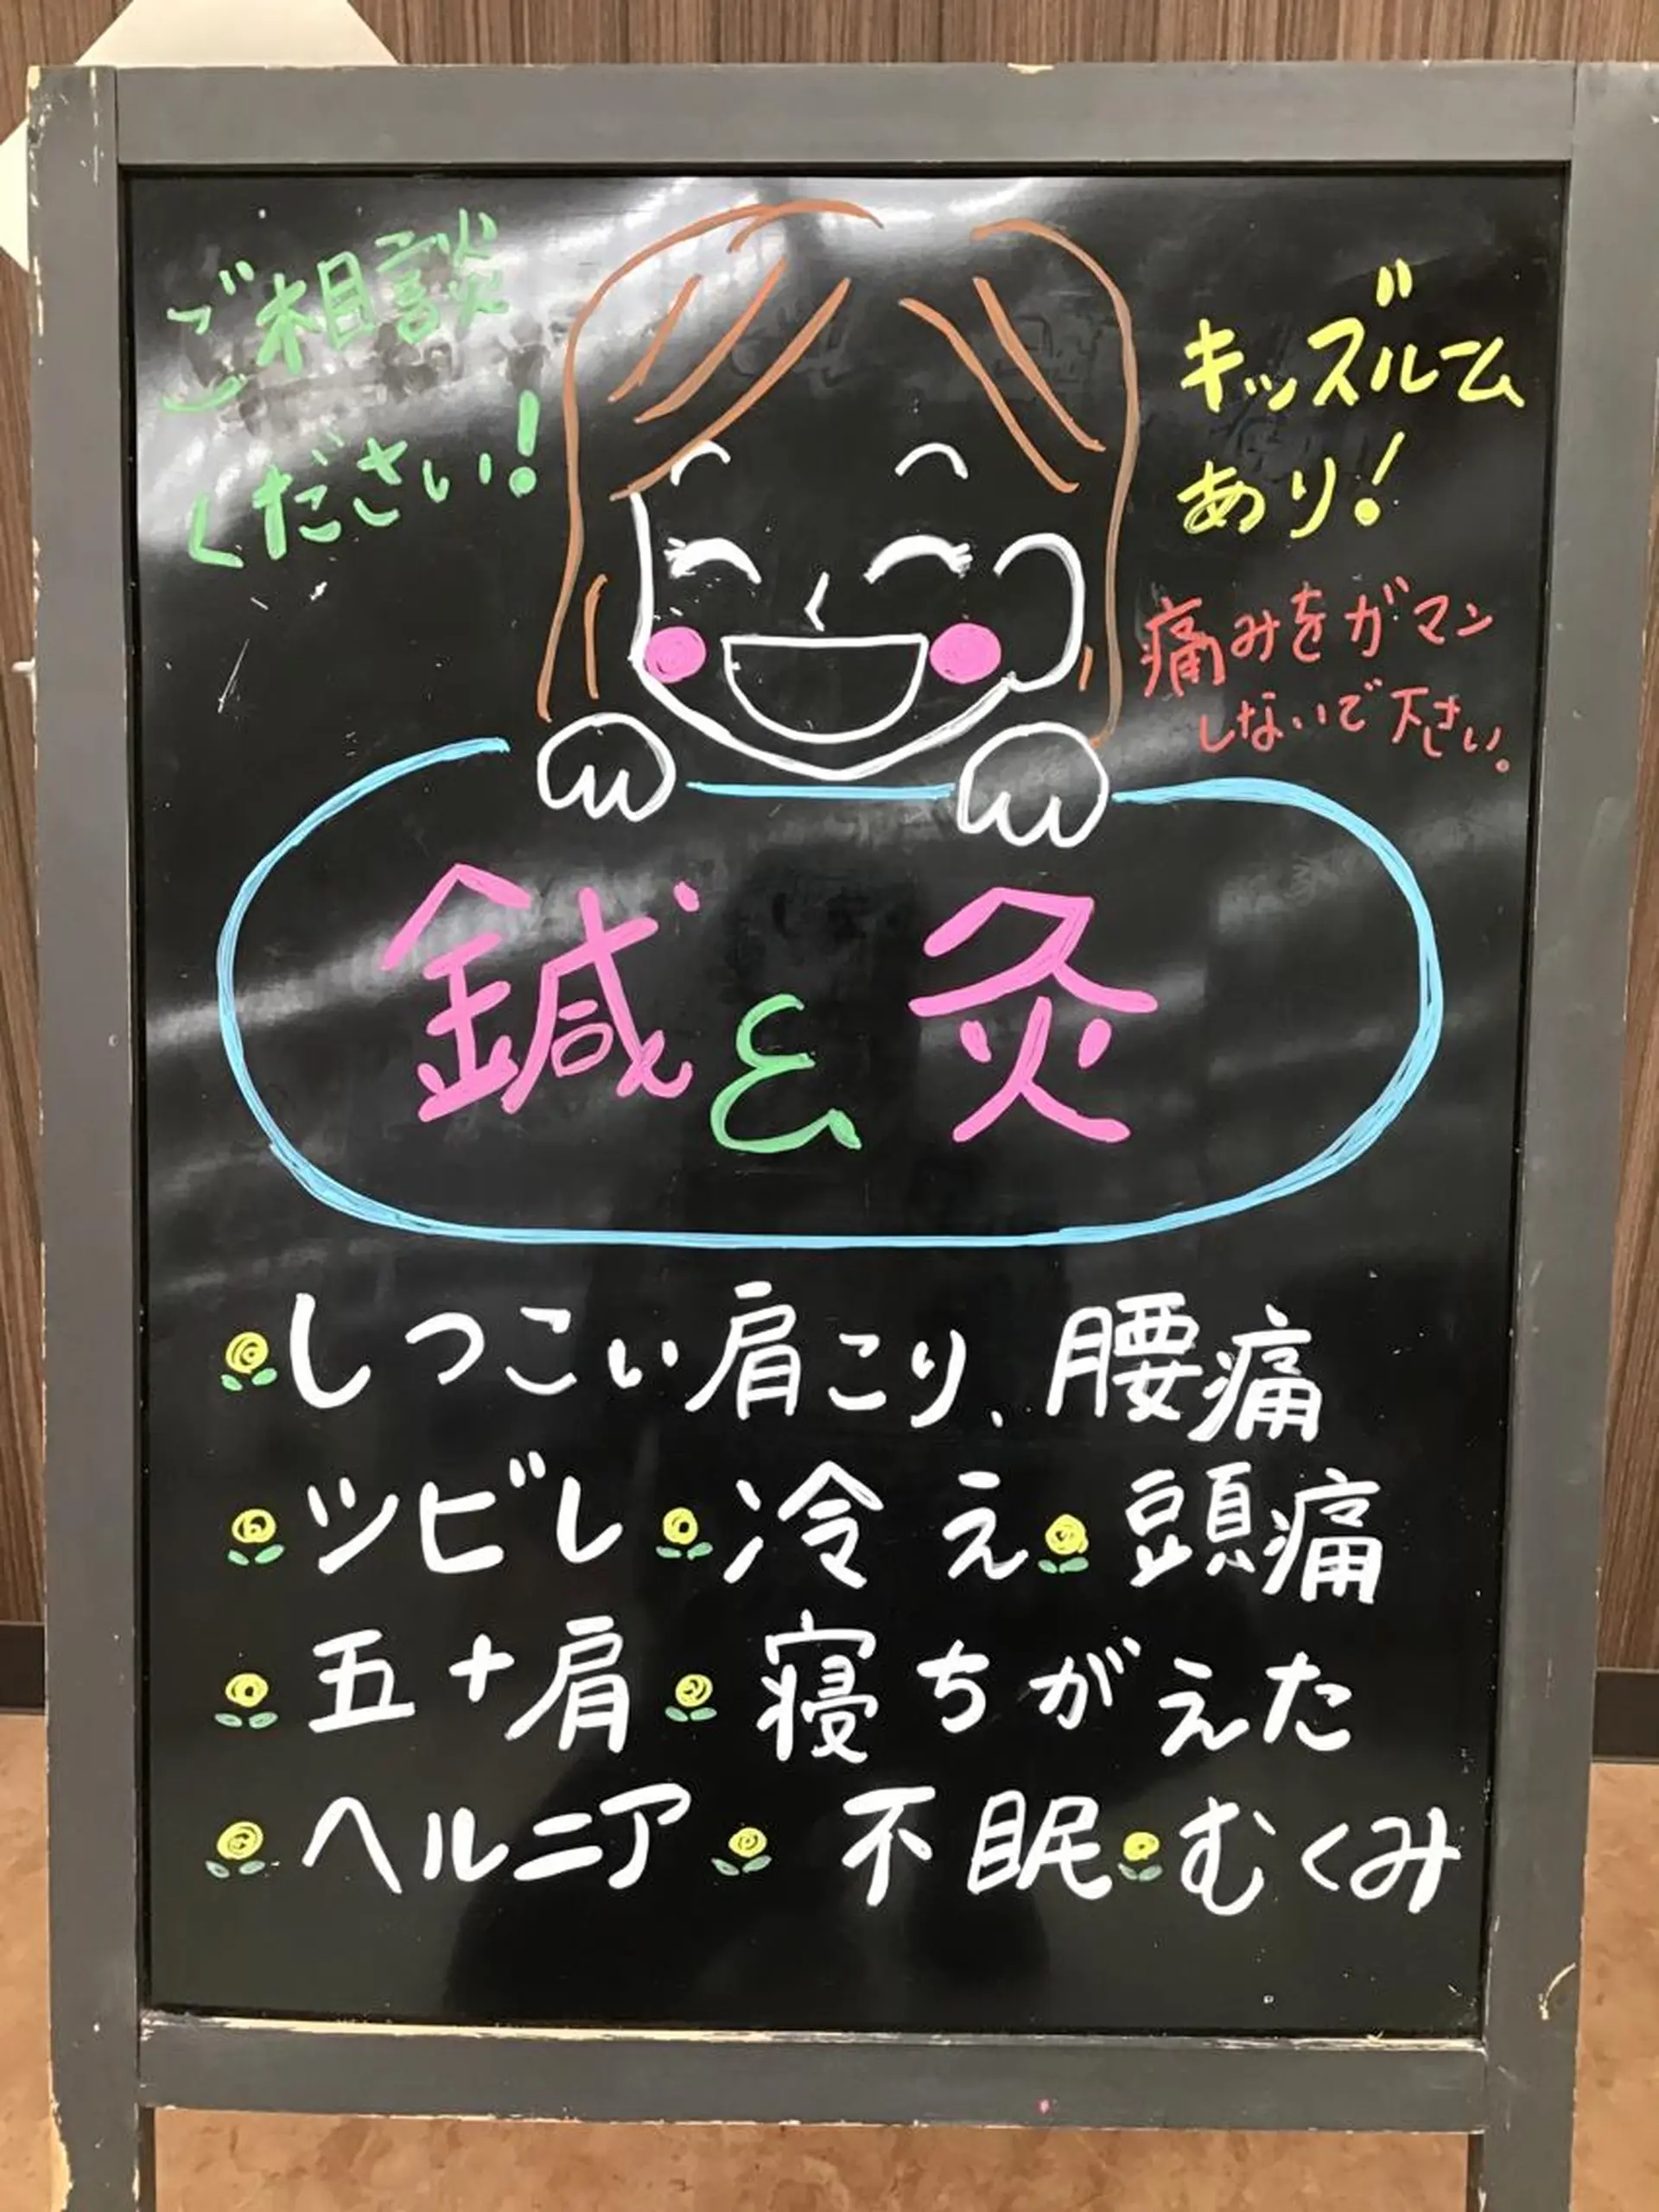 ご相談
ください!
キッズルーム
あり!
痛みをガマン
しないで下さい。
鍼と灸
しつこい肩こり、腰痛
ツビレ 冷え 頭痛
五十肩 寝ちがえた
ヘルニア 不眠 むくみ